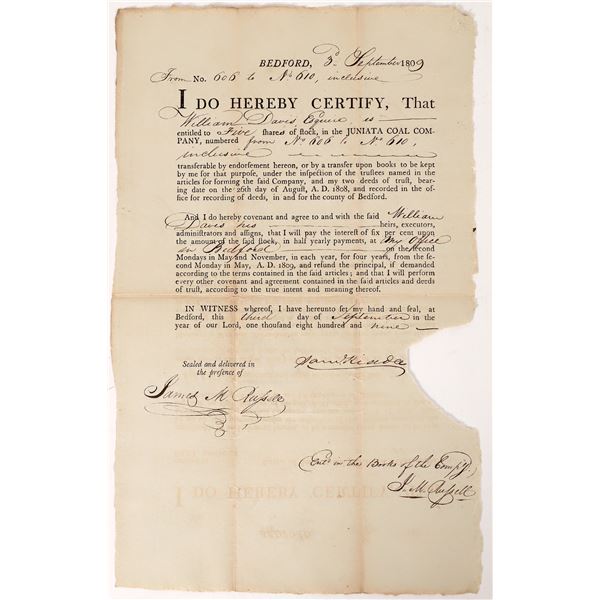 BEDFORD, 3d. September 1809
From No. 606 to No 610, inclusive
I DO HEREBY CERTIFY, That
William Davis Esquire is
entitled to Five shares of stock, in the JUNIATA COAL COM-
PANY, numbered from No 606 to No 610,
inclusive
transferable by endorsement hereon, or by a transfer upon books to be kept
by me for that purpose, under the inspection of the trustees named in the
articles for forming the said Company, and my two deeds of trust, bear-
ing date on the 26th day of August, A. D. 1808, and recorded in the of-
fice for recording of deeds, in and for the county of Bedford.
And I do hereby covenant and agree to and with the said William
Davis his heirs, executors,
administrators and assigns, that I will pay the interest of six per cent upon
the amount of the said stock, in half yearly payments, at my office
in Bedford on the second
Mondays in May and November, in each year, for four years, from the se-
cond Monday in May, A. D. 1809, and refund the principal, if demanded
according to the terms contained in the said articles; and that I will perform
every other covenant and agreement contained in the said articles and deeds
of trust, according to the true intent and meaning thereof.
IN WITNESS whereof, I have hereunto set my hand and seal, at
Bedford, this third day of September in the
year of our Lord, one thousand eight hundred and nine
Sealed and delivered in
the presence of
James M Russell
Entd in the Books of the Compy.
J. M. Russell